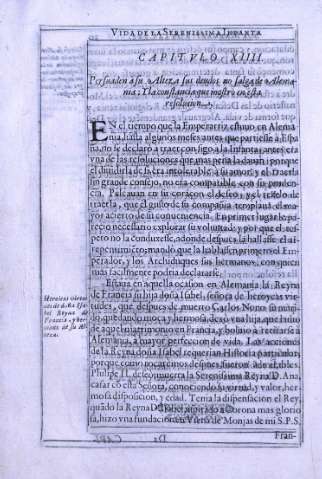 VIDA DE LA SERENISSIMA INFANTA
CAPITVLO XIIII
Persuaden a su Alteza sus deudos no salga de Alemania;
Y la constancia que mostrò en esta
resolucion.
EN el tiempo que la Emperatriz estuuo en Alemania,
hasta algunos meses antes que partiesse a España,
no se declarò a traer consigo a la Infanta: antes era
vna de las resoluciones que mas pena la dauan; porque
el diuidirla de si era intolerable a su amor; y el traerla
sin grande consejo, no era compatible con su prudencia.
en su coraçon el desseo, y el rezelo de
traerla, que el gusto de su compañia
yor acierto de su conueniencia. En primer lugar le parecio
necessario explorar su voluntad; y por que el respeto
no la conduxesse, adonde despues la hallasse el arrepentimiento;
mandò que la hablasse primero el Emperador,
y los Archiduques sus hermanos, con quien
mas facilmente podria declararse.
Estaua en aquella ocasion en Alemania la Reyna
de Francia su hija doña Isabel, señora de heroycas virtudes,
que despues de muerto Carlos Nono su marido,
quedando moça, y hermosa, dexò vna hija, que huuo
de aquel matrimonio en Francia, y boluio a retirarse a
Alemania, a mayor perfeccion de vida. Las acciones
de la Reyna doña Isabel requerian Historia particular,
porque como
Philipe II. de la Serenissima Reyna D. Ana,
casar cõ esta Señora, conociendo su virtud, y valor, hermosa
disposicion, y edad. Tenia la dispensacion el Rey,
quãdo la Reyna D. Isabel, aspirando a Corona mas gloriosa,
hizo vna fundacion en Viena de Monjas de mi S. P. S.
Fran-
Heroicas virtudes
de doña Isabel
Reyna de
Francia,